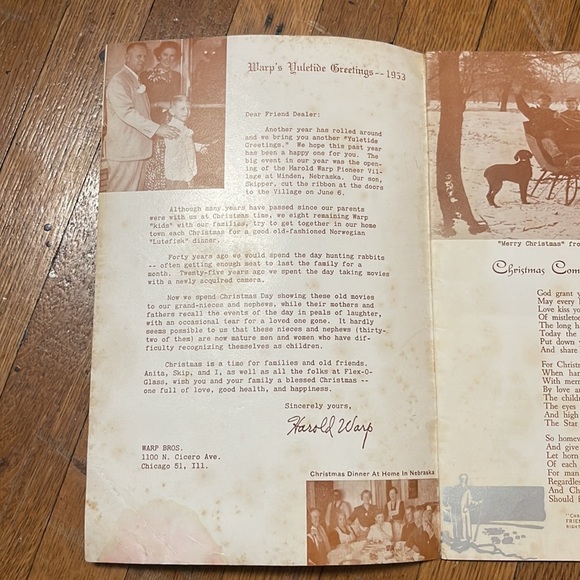 Warp's Yuletide Greetings--1953
Dear Friend Dealer:
Another year has rolled around
and we bring you another "Yuletide
Greetings." We hope this past year
has been a happy one for you. The
big event in our year was the open-
ing of the Harold Warp Pioneer Vil-
lage at Minden, Nebraska. Our son,
Skipper, cut the ribbon at the doors
to the Village on June 6.
Although many years have passed since our parents
were with us at Christmas time, we eight remaining Warp
"kids" with our families, try to get together in our home
town each Christmas for a good old-fashioned Norwegian
"Lutefisk" dinner.
Forty years ago we would spend the day hunting rabbits
-- often getting enough meat to last the family for a
month. Twenty-five years ago we spent the day taking movies
with a newly acquired camera.
Now we spend Christmas Day showing these old movies
to our grand-nieces and nephews, while their mothers and
fathers recall the events of the day in peals of laughter,
with an occasional tear for a loved one gone. It hardly
seems possible to us that these nieces and nephews (thirty-
two of them) are now mature men and women who have dif-
ficulty recognizing themselves as children.
Christmas is a time for families and old friends.
Anita, Skip, and I, as well as all the folks at Flex-O-
Glass, wish you and your family a blessed Christmas --
one full of love, good health, and happiness.
Sincerely yours,
Harold Warp
WARP BROS.
1100 N. Cicero Ave.
Chicago 51, Ill.
Christmas Dinner At Home In Nebraska
"Merry Christmas" fro
Christmas Com
God grant y
May every
Love kiss yo
Of mistletoe
The long h
Today the
Put down y
And share
For Christ
When har
With mem
By love a
The child
The eyes
And high
The Star
So homew
And give
Let horn
Of each
For man
Regardles
And Ch
Should i
"Chr
FRIEN
RIGHT